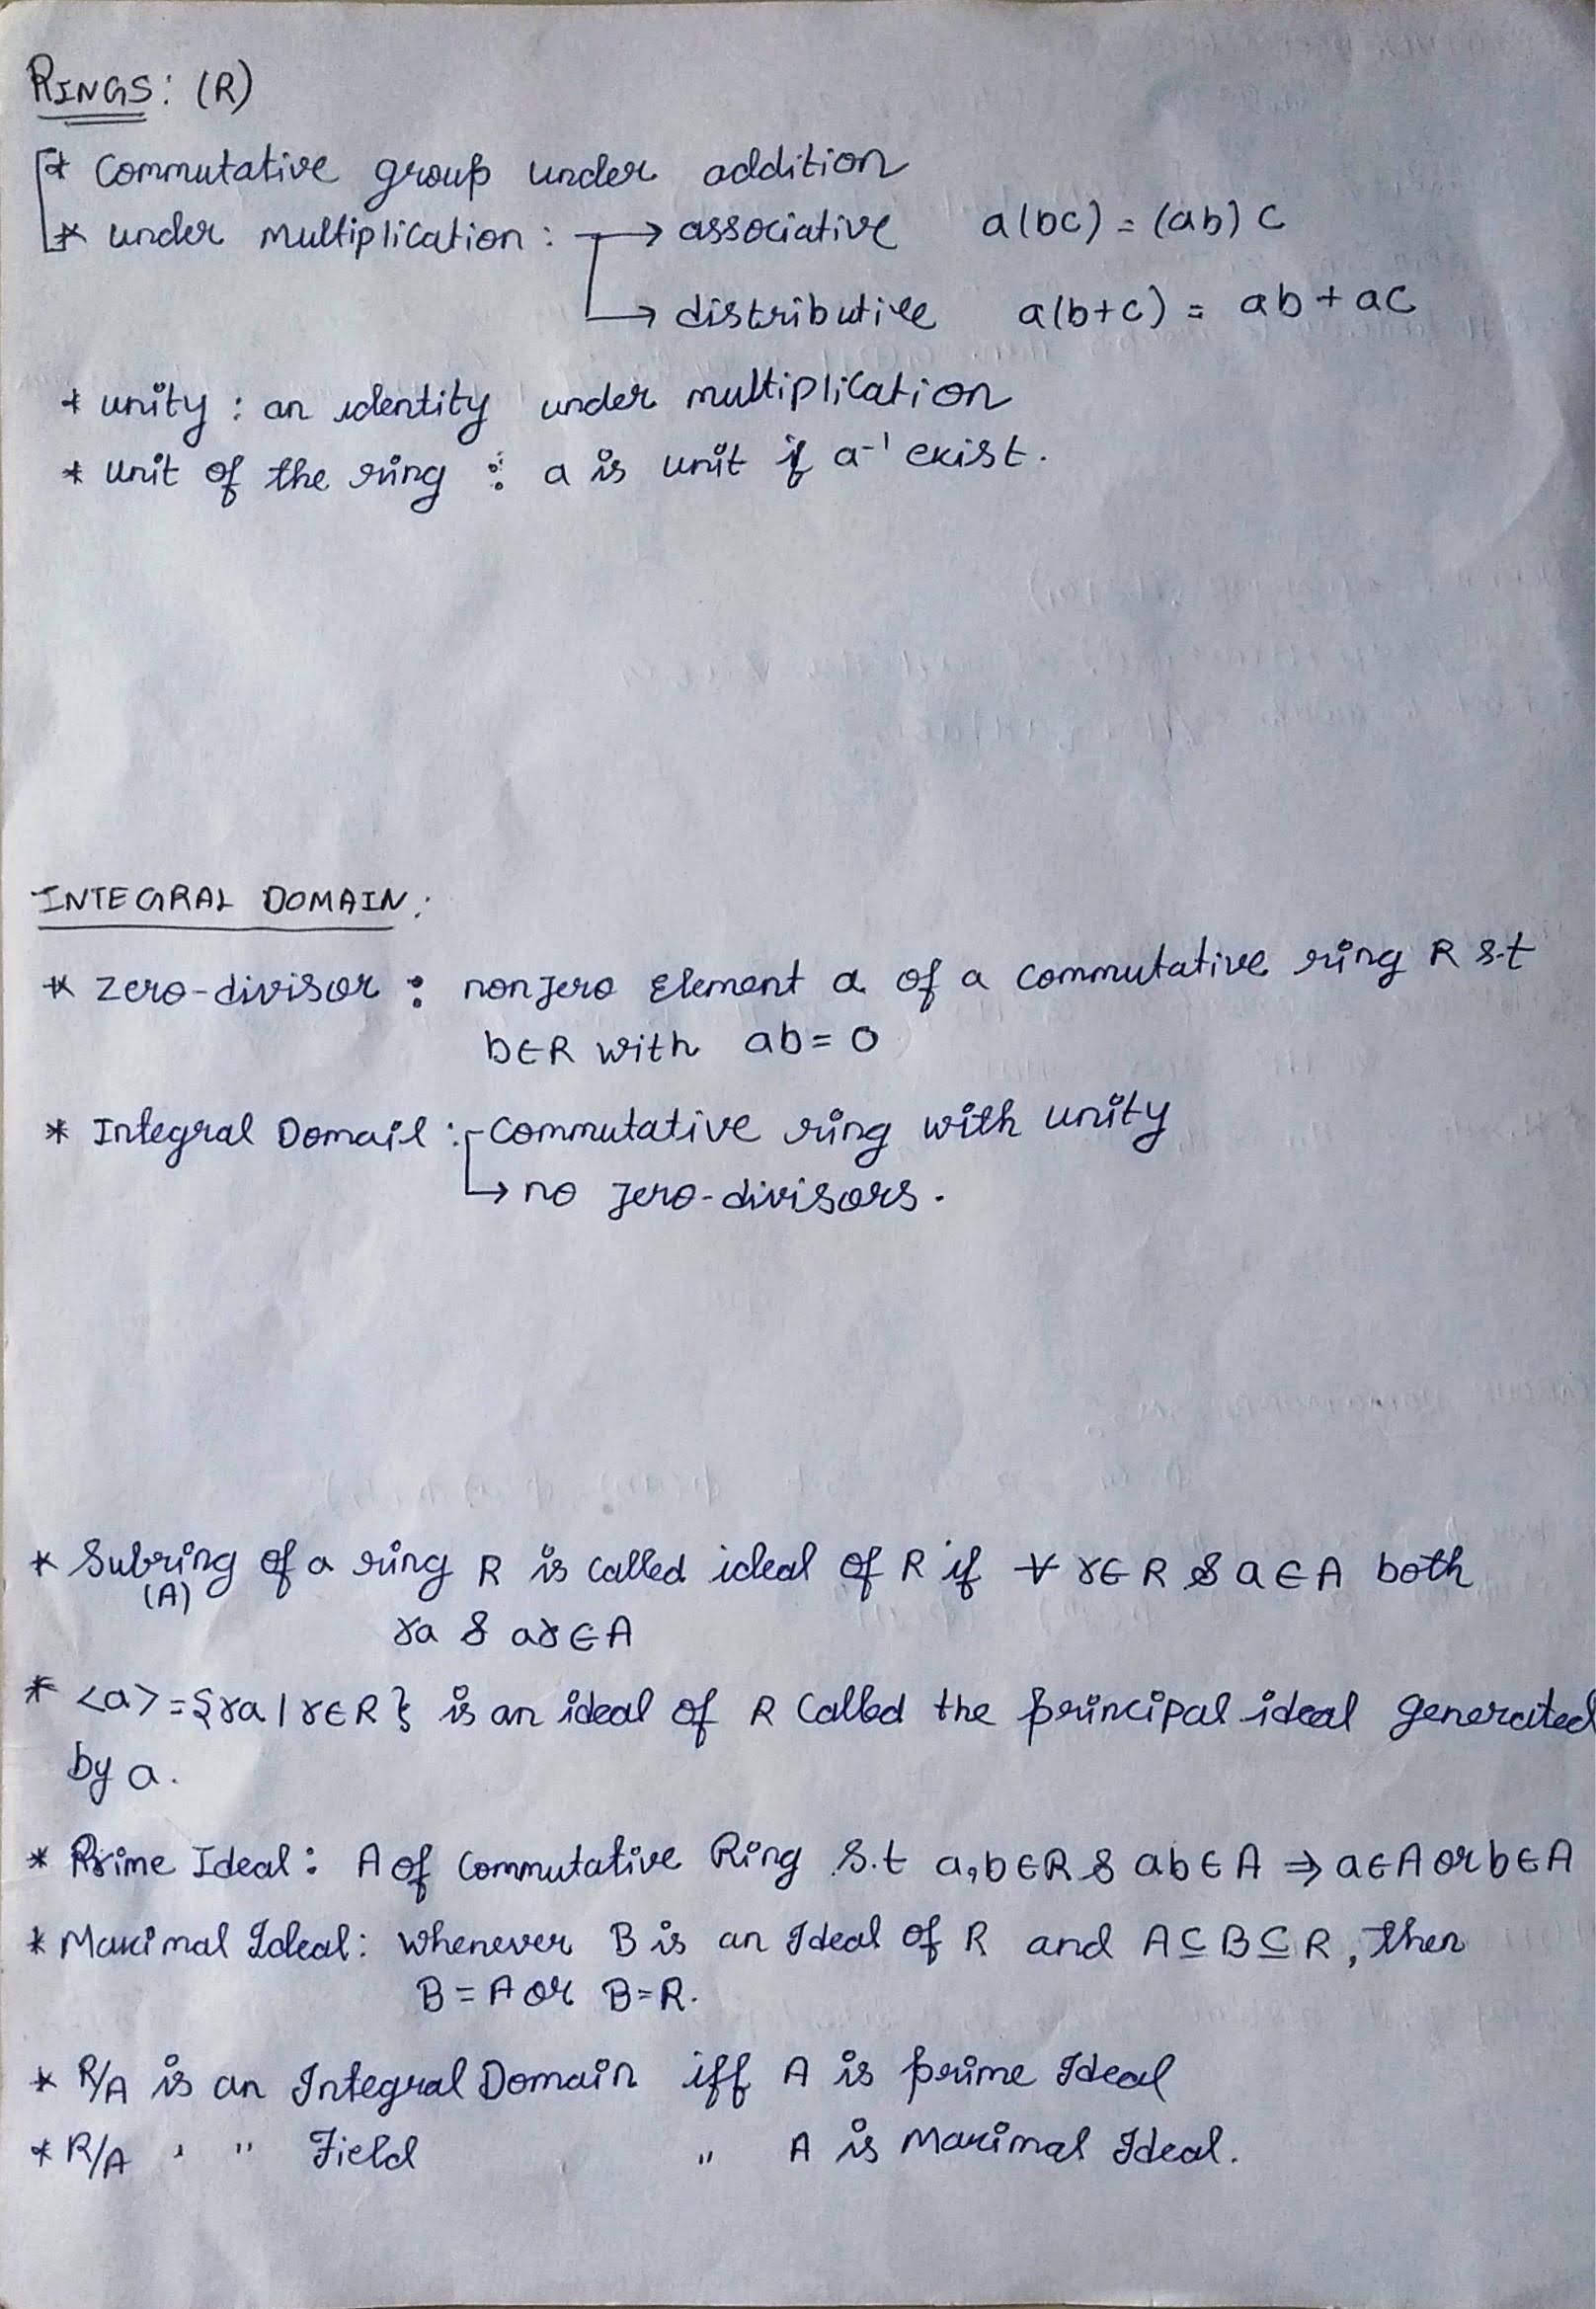 RINGS: (R)
* Commutative group under addition
* under multiplication : → associative a(bc) = (ab) c
→ distributive a(b+c) = ab + ac
* unity : an identity under multiplication
* unit of the ring : a is unit if a⁻¹ exist.
INTEGRAL DOMAIN:
* zero-divisor : nonzero element a of a commutative ring R s.t
b∈R with ab = 0
* Integral Domail : commutative ring with unity
→ no zero-divisors.
* Subring of a ring R is called ideal of R if ∀ r∈R & a∈A both
(A)
ra & ar∈A
* <a> = {ra | r∈R} is an ideal of R called the principal ideal generated
by a.
* Prime Ideal : A of Commutative Ring s.t a,b∈R & ab∈A ⇒ a∈A or b∈A
* Maximal Ideal : whenever B is an Ideal of R and A⊆B⊆R, then
B = A or B=R.
* R/A is an Integral Domain iff A is prime Ideal
* R/A " " Field " A is Maximal Ideal.